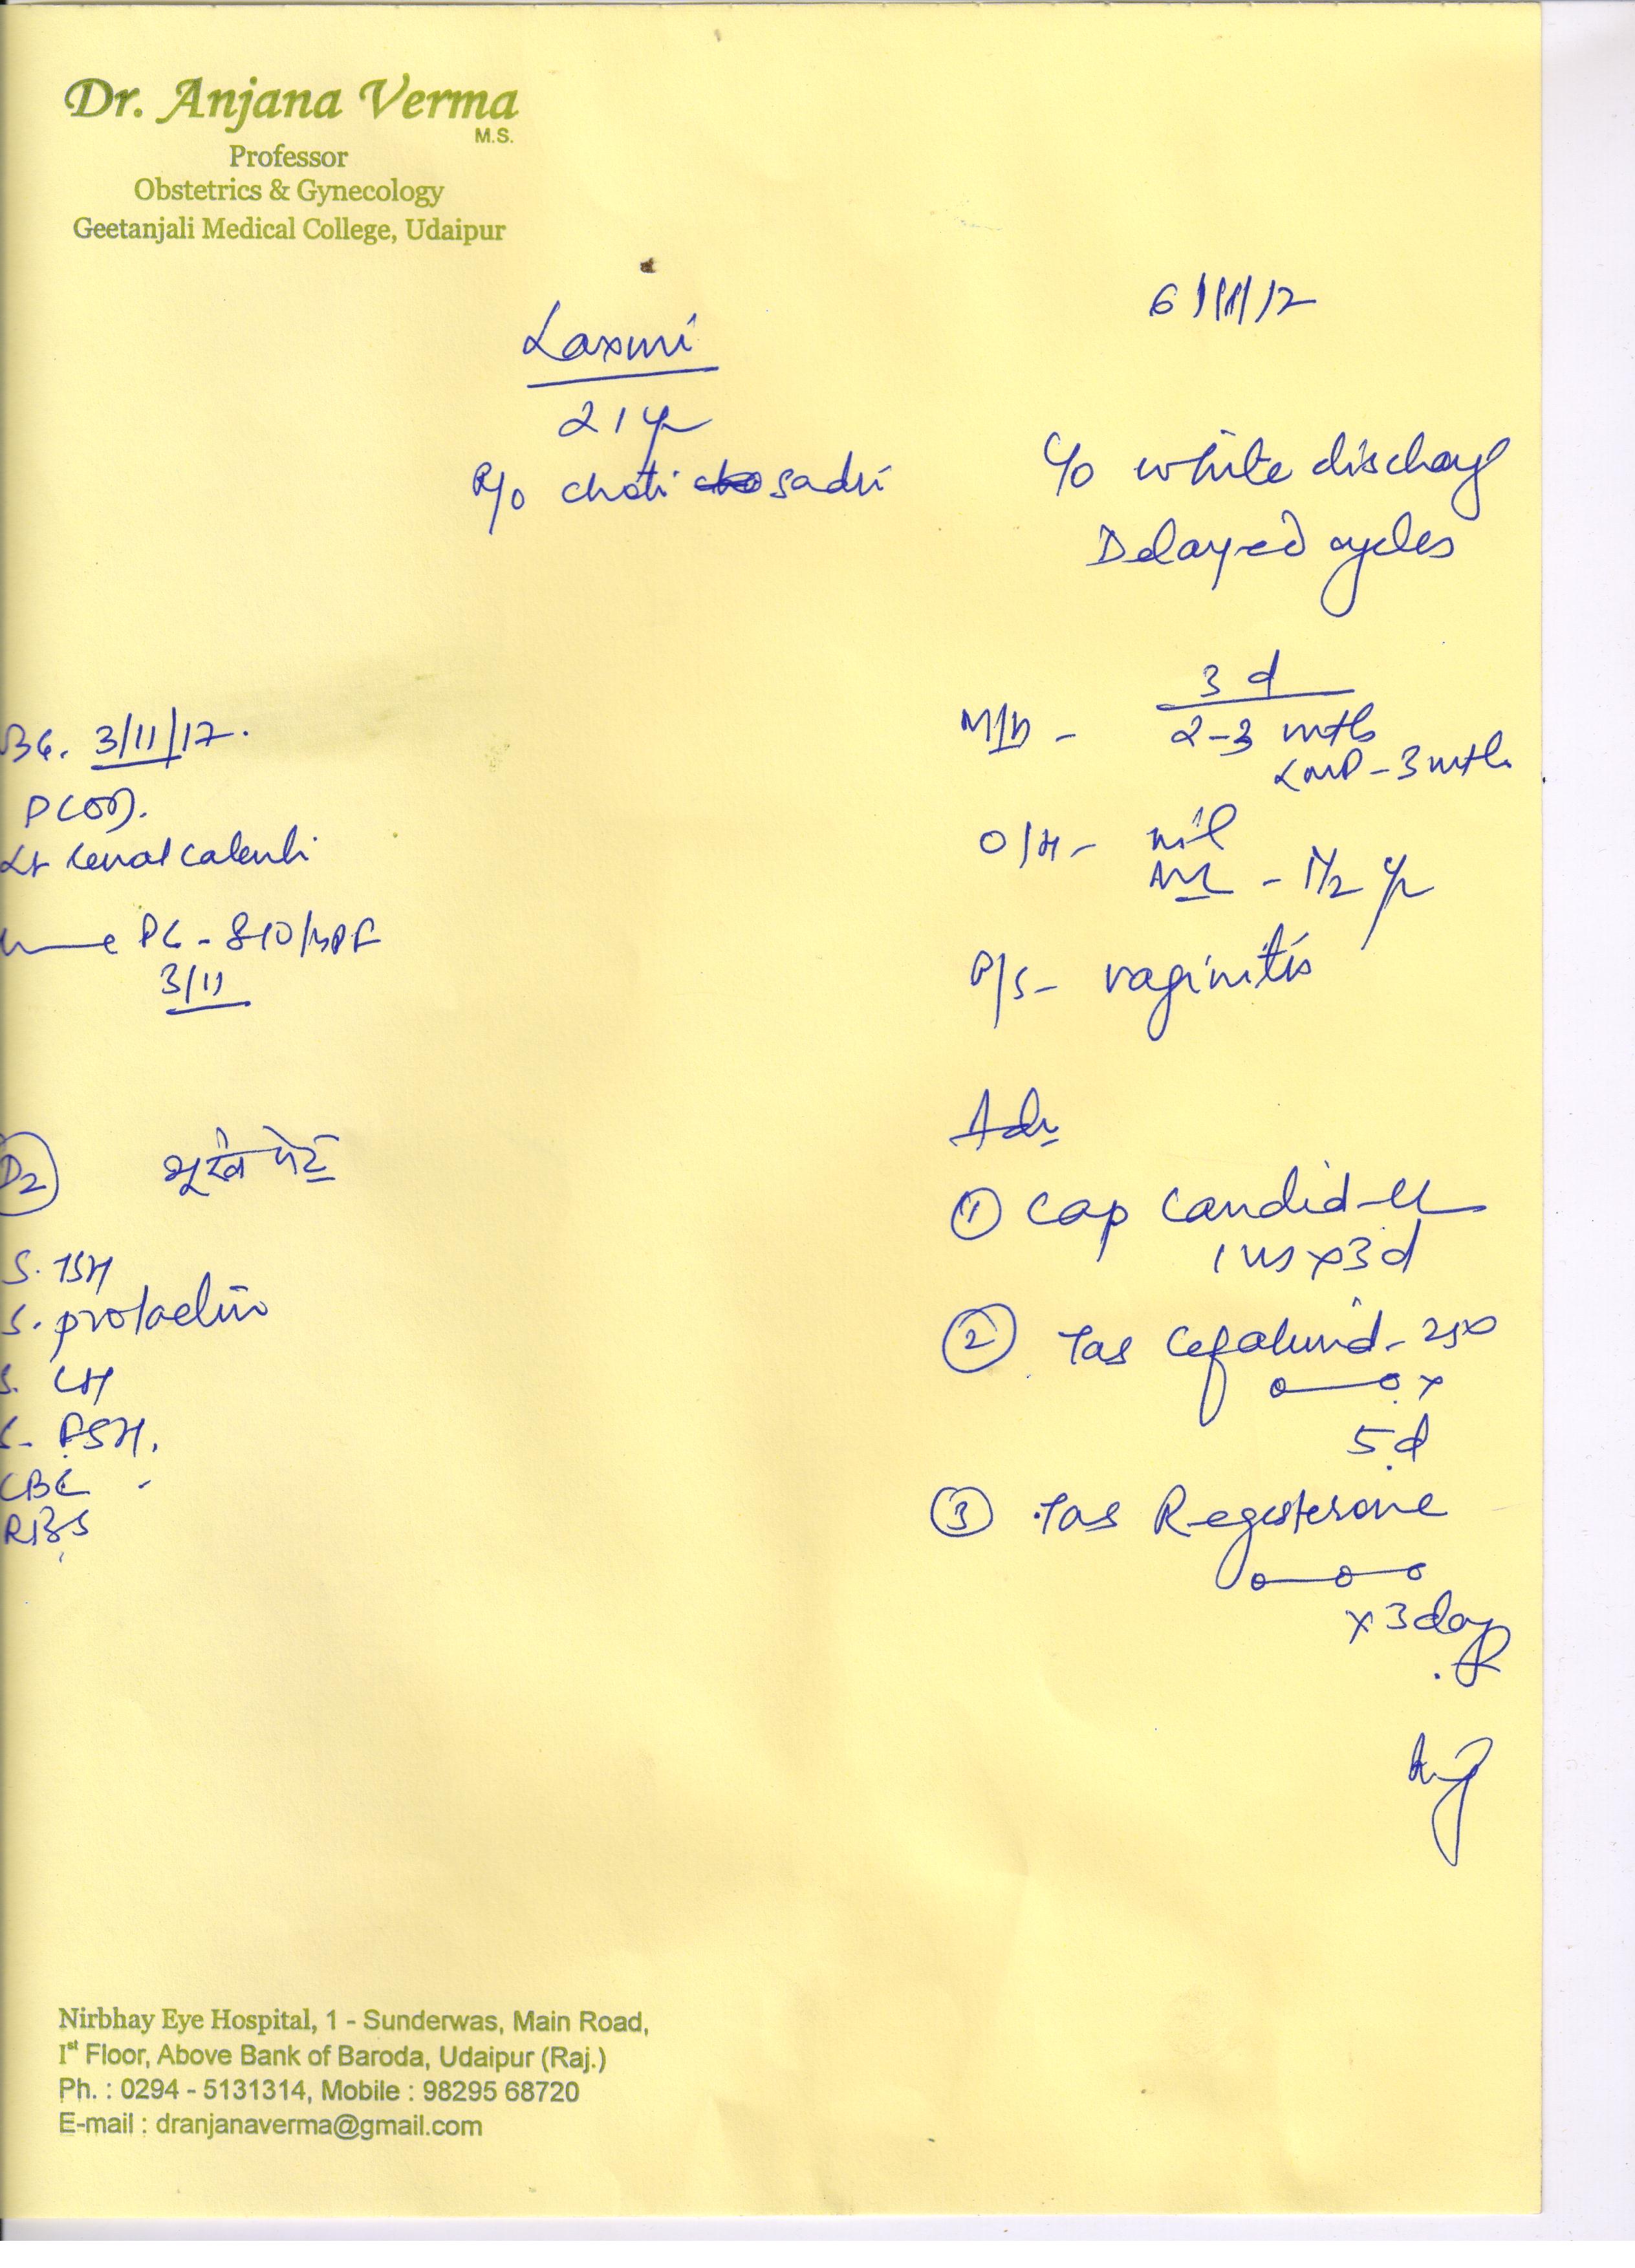 Dr. Anjana Verma
M.S.
Professor
Obstetrics & Gynecology
Geetanjali Medical College, Udaipur
6/11/17
Laxmi
21 yr
R/o choti sadri
C/o white discharge
Delayed cycles
M/H - 3 d
2-3 mths
LMP - 3 mth
O/H - nil
ML - 1 1/2 yr
P/S - vaginitis
3/11/17.
PCOD.
Lt renal calculi
PC - 8-10/HPF
3/11
D2 भूखे पेट
S. TSH
S. prolactin
S. LH
S. FSH.
CBC
RBS
Adv
① Cap Candid-CL
1 HS x 3 d
② Tab Cefakind - 250
x
5 d
③ Tab Regesterone
x 3 days
Nirbhay Eye Hospital, 1 - Sunderwas, Main Road,
Ist Floor, Above Bank of Baroda, Udaipur (Raj.)
Ph. : 0294 - 5131314, Mobile : 98295 68720
E-mail : dranjanaverma@gmail.com